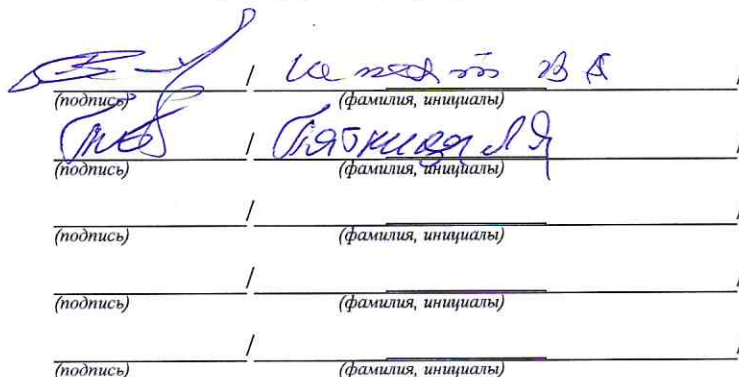 / В А /
(подпись) (фамилия, инициалы)
/ Пятница Л Я /
(подпись) (фамилия, инициалы)
/ /
(подпись) (фамилия, инициалы)
/ /
(подпись) (фамилия, инициалы)
/ /
(подпись) (фамилия, инициалы)